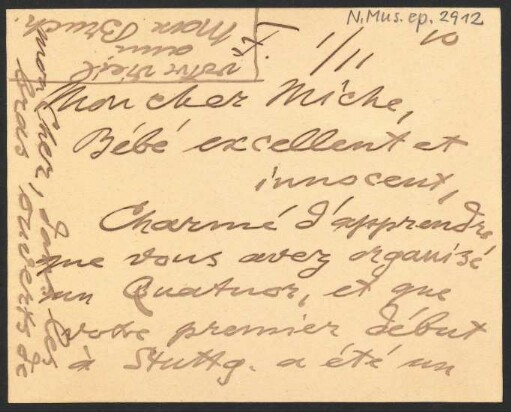 N. Mus. ep. 2912
F. 1/11 10
Mon cher Miche,
Bébé excellent et
innocent,
Charmé d'apprendre
que vous avez organisé
un Quatuor, et que
votre premier début
à Stuttg. a été un
mon cher, dans les
bras ouverts de
votre vieil
ami
Max Bruch